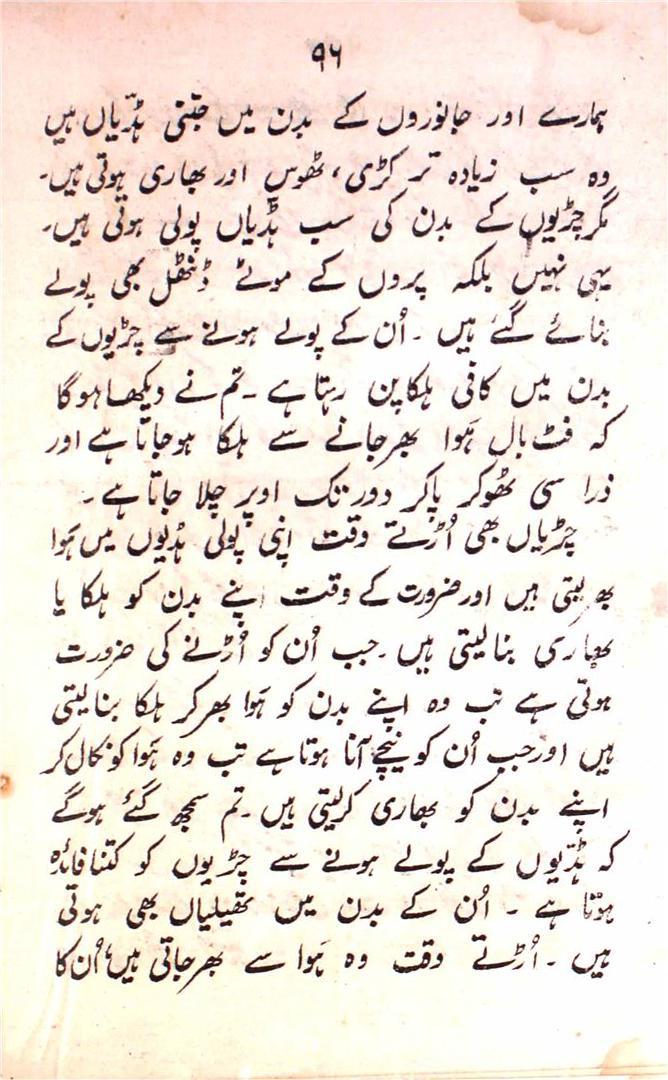 ۹۶
ہمارے اور جانوروں کے بدن میں جتنی ہڈّیاں ہیں
وہ سب زیادہ تر کڑی، ٹھوس اور بھاری ہوتی ہیں۔
مگر چڑیوں کے بدن کی سب ہڈیاں پولی ہوتی ہیں۔
یہی نہیں بلکہ پروں کے موٹے ڈنٹھل بھی پولے
بنائے گئے ہیں ۔ اُن کے پولے ہونے سے چڑیوں کے
بدن میں کافی ہلکاپن رہتا ہے ۔ تم نے دیکھا ہوگا
کہ فٹ بال ہَوا بھر جانے سے ہلکا ہوجاتا ہے اور
ذرا سی ٹھوکر پاکر دور تک اوپر چلا جاتا ہے ۔
چڑیاں بھی اُڑتے وقت اپنی پولی ہڈیوں میں ہَوا
بھر لیتی ہیں اور ضرورت کے وقت اپنے بدن کو ہلکا یا
بھاری بنالیتی ہیں ۔ جب اُن کو اُڑنے کی ضرورت
ہوتی ہے تب وہ اپنے بدن کو ہَوا بھر کر ہلکا بنالیتی
ہیں اور جب اُن کو نیچے آنا ہوتا ہے تب وہ ہَوا کو نکال کر
اپنے بدن کو بھاری کرلیتی ہیں ۔ تم سمجھ گئے ہوگے
کہ ہڈّیوں کے پولے ہونے سے چڑیوں کو کتنا فائدہ
ہوتا ہے ۔ اُن کے بدن میں تھیلیاں بھی ہوتی
ہیں ۔ اُڑتے وقت وہ ہَوا سے بھر جاتی ہیں، اُن کا